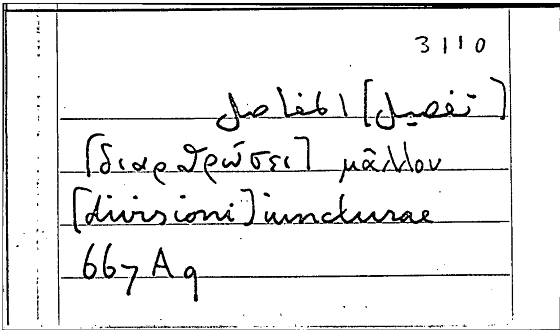 3110
[تفصيل] المفاصل
[διαρθρώσει] μᾶλλον
[divisioni] iuncturae
667 A 9